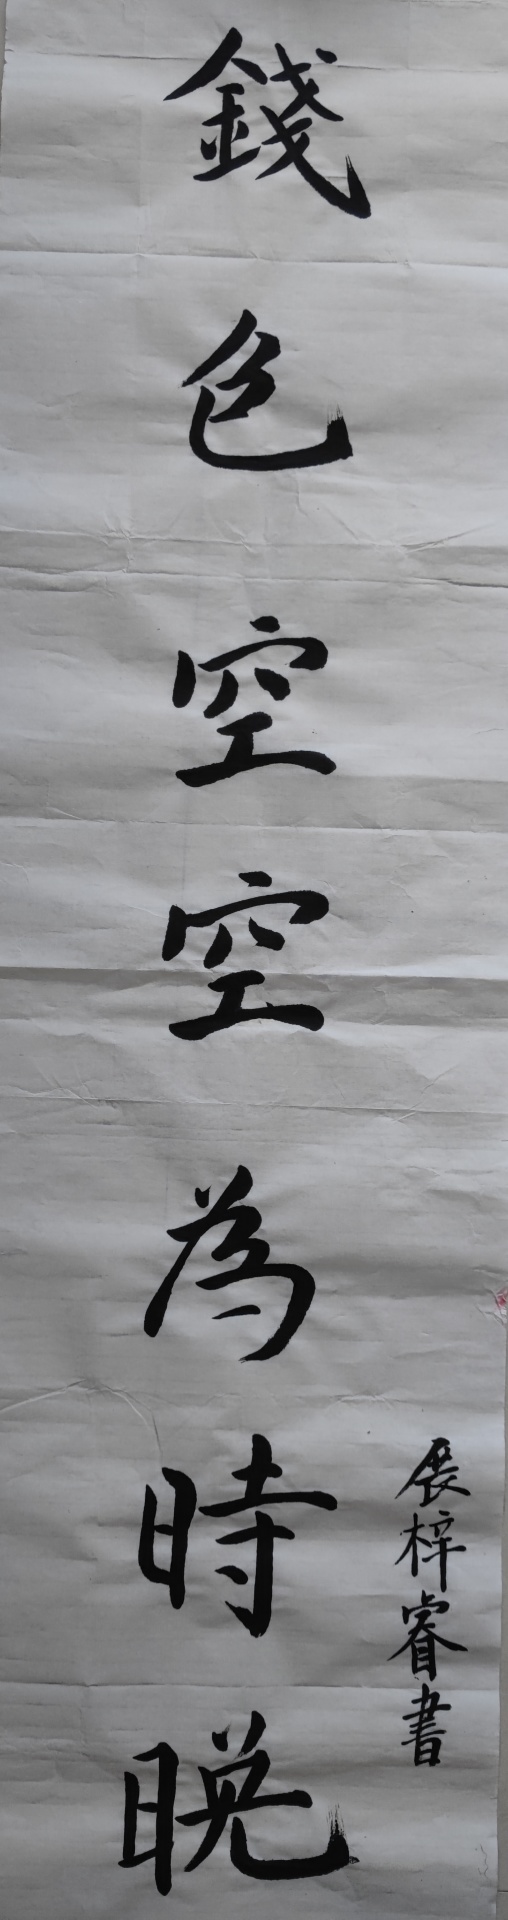 錢色空空為時晚
展梓睿書